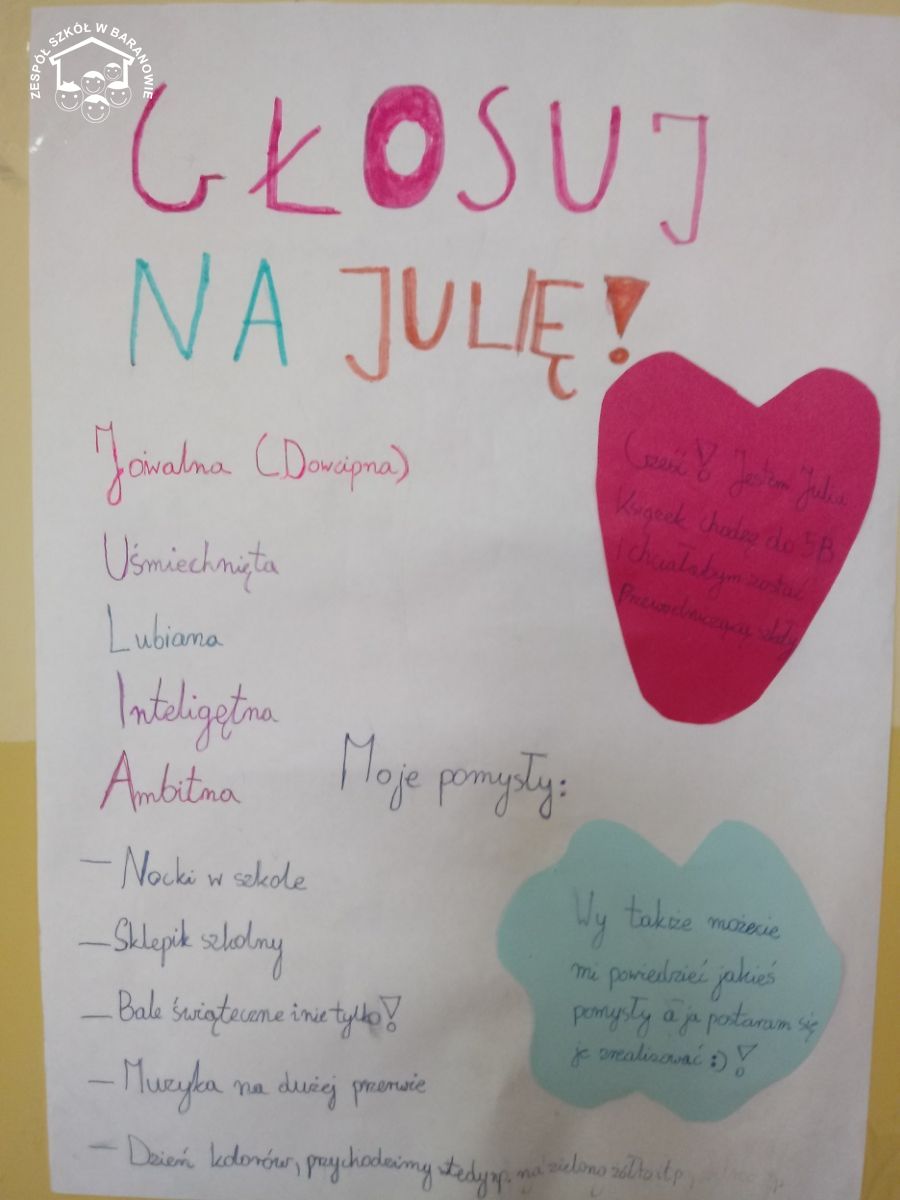 ZESPÓŁ SZKÓŁ W BARANOWIE
GŁOSUJ
NA JULIĘ!
Jowialna (Dowcipna)
Uśmiechnięta
Lubiana
Inteligętna
Ambitna
Cześć! Jestem Julia
Książek chodzę do 5B
i chciałabym zostać
Przewodniczącą szkoły
Moje pomysły:
– Nocki w szkole
– Sklepik szkolny
– Bale świąteczne i nie tylko!
– Muzyka na dużej przerwie
– Dzień kolorów, przychodzimy wtedy np. na zielono żółto itp
Wy także możecie
mi powiedzieć jakieś
pomysły a ja postaram się
je zrealizować :)!